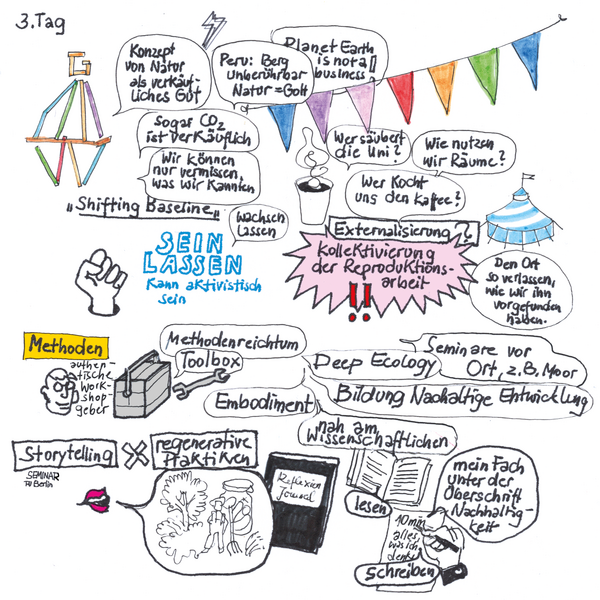 3.Tag
G
Konzept
von Natur
als verkäuf-
liches Gut
Peru: Berg
unberührbar
Natur = Gott
Planet Earth
is not a
business!
Sogar CO2
ist verkäuflich
Wir können
nur vermissen,
was wir kannten
"Shifting Baseline"
wachsen
lassen
SEIN
LASSEN
Kann aktivistisch
sein
Wer säubert
die Uni?
Wie nutzen
wir Räume?
Wer kocht
uns den Kaffee?
Externalisierung?
Kollektivierung
der Reproduktions-
arbeit
!!
Den Ort
so verlassen,
wie wir ihn
vorgefunden
haben.
Methoden
authen-
tische
Work-
shop-
geber
Methodenreichtum
Toolbox
Deep Ecology
Seminare vor
Ort, z.B. Moor
Embodiment
Bildung Nachaltige Entwicklung
nah am
Wissenschaftlichen
Storytelling X regenerative
Praktiken
SEMINAR
TU Berlin
Reflexion
Journal
lesen
10 min
alles,
was ich
denke
Schreiben
mein Fach
unter der
Überschrift
Nachhaltig-
keit